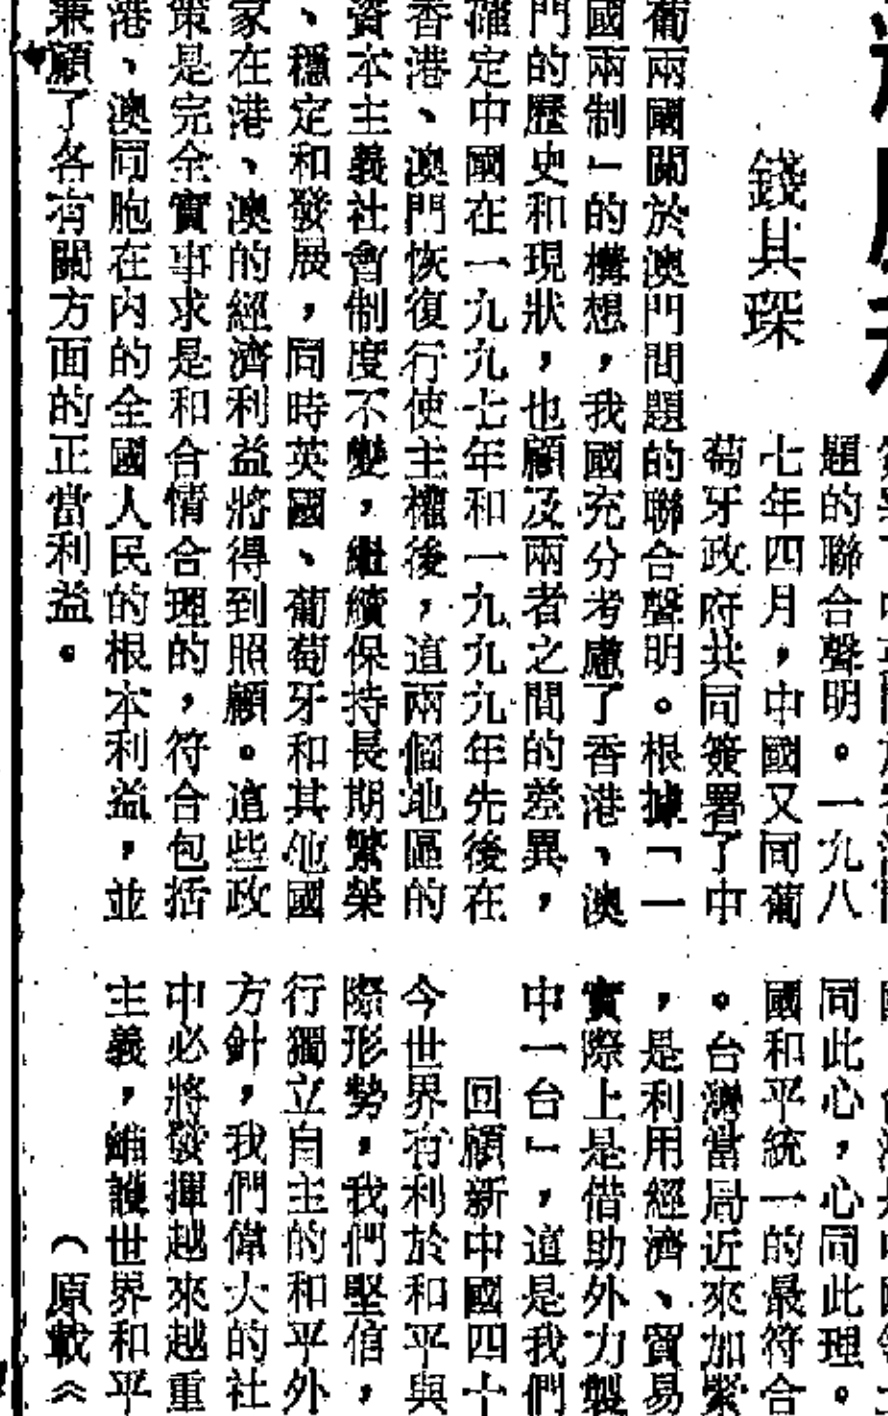 錢其琛
題的聯合聲明。一九八
七年四月，中國又同葡
萄牙政府共同簽署了中
葡兩國關於澳門問題的聯合聲明。根據「一
國兩制」的構想，我國充分考慮了香港、澳
門的歷史和現狀，也顧及兩者之間的差異，
確定中國在一九九七年和一九九九年先後在
香港、澳門恢復行使主權後，這兩個地區的
資本主義社會制度不變，繼續保持長期繁榮
、穩定和發展，同時英國、葡萄牙和其他國
家在港、澳的經濟利益將得到照顧。這些政
策是完全實事求是和合情合理的，符合包括
港、澳同胞在內的全國人民的根本利益，並
兼顧了各有關方面的正當利益。
同此心，心同此理。
國和平統一的最符合
。台灣當局近來加緊
，是利用經濟、貿易
實際上是借助外力製
中一台」，這是我們
回顧新中國四十
今世界有利於和平與
際形勢，我們堅信，
行獨立自主的和平外
方針，我們偉大的社
中必將發揮越來越重
主義，維護世界和平
（原載《